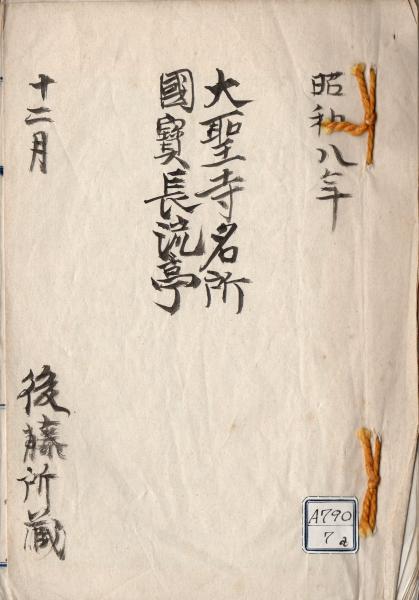 昭和八年
大聖寺名所
國寳長流亭
十二月
後藤所蔵
A790
7a